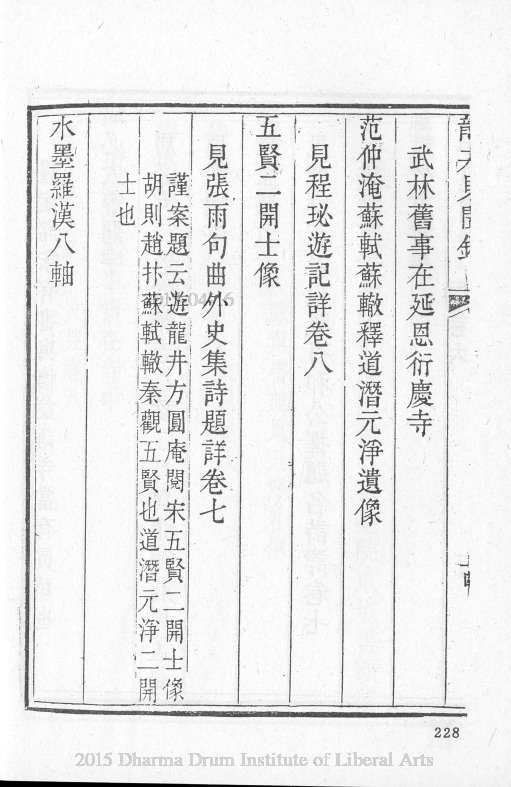 龍井見聞錄
武林舊事在延恩衍慶寺
范仲淹蘇軾蘇轍釋道潛元淨遺像
見程珌遊記詳卷八
五賢二開士像
見張雨句曲外史集詩題詳卷七
謹案題云遊龍井方圓庵閱宋五賢二開士像
胡則趙抃蘇軾轍秦觀五賢也道潛元淨二開
士也
水墨羅漢八軸
228
2015 Dharma Drum Institute of Liberal Arts